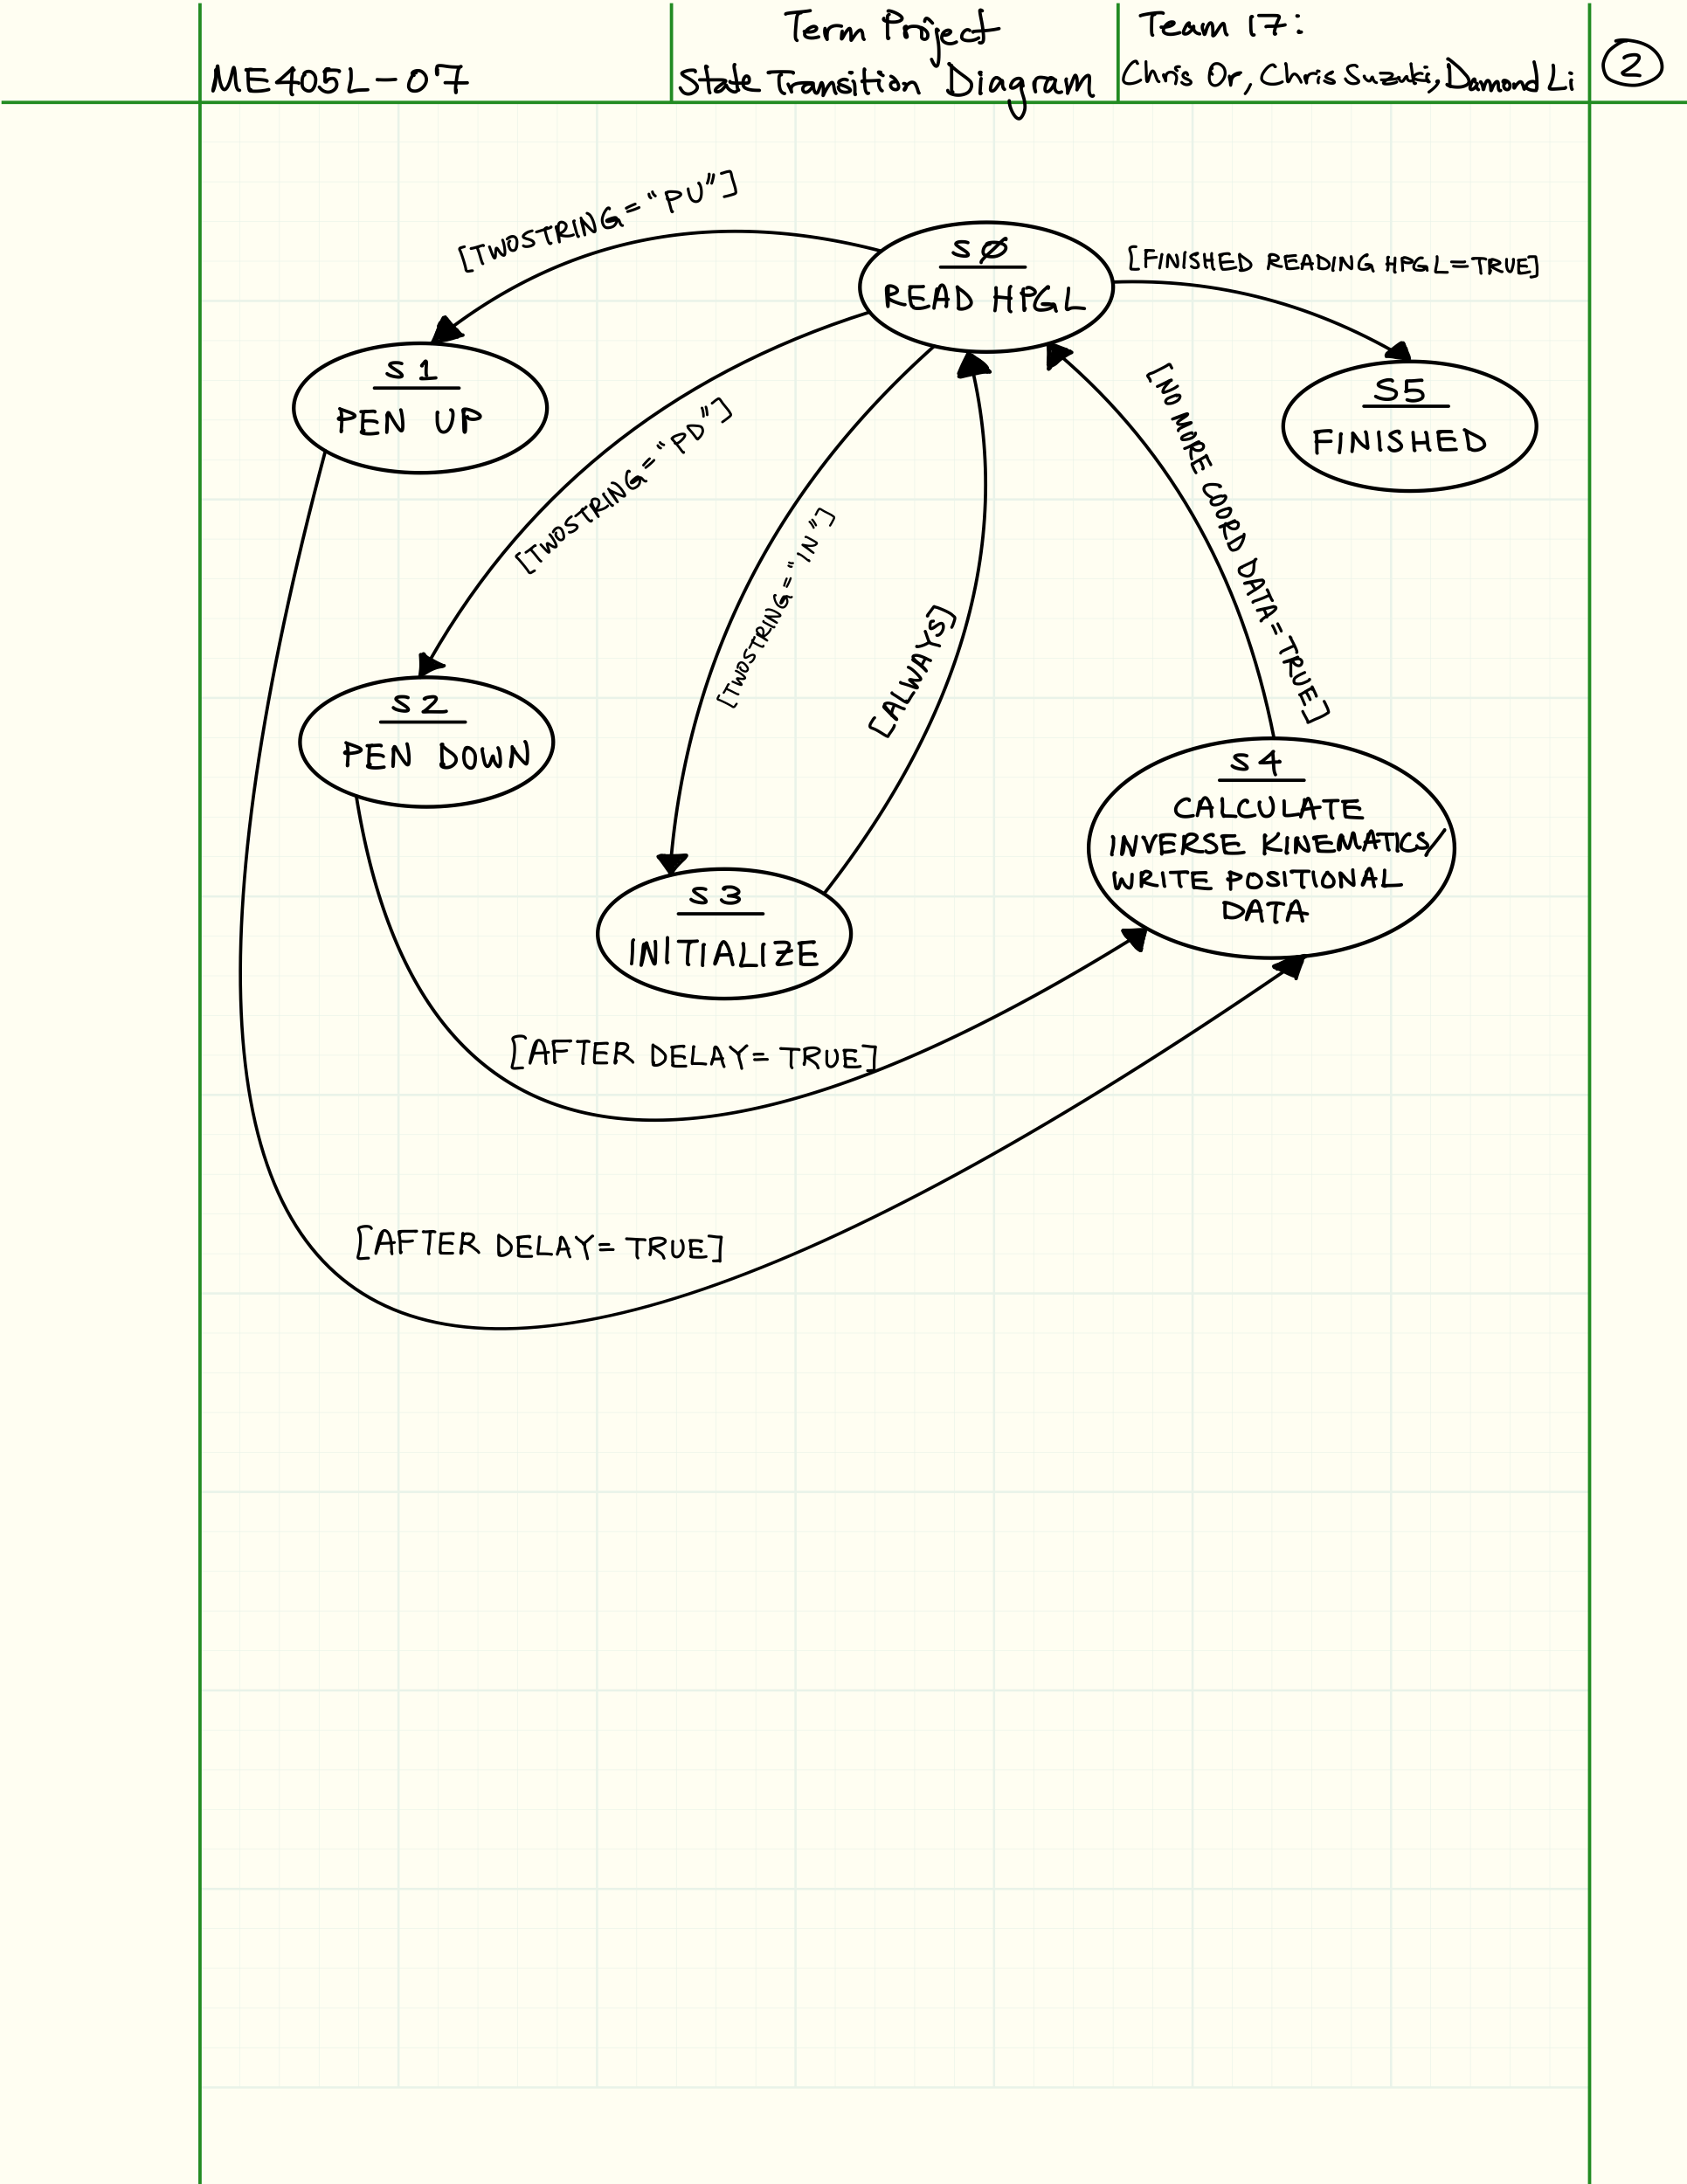 ME405L-07
Term Project
State Transition Diagram
Team 17:
Chris Or, Chris Suzuki, Damond Li
2
[TWOSTRING="PU"]
SØ
READ HPGL
[FINISHED READING HPGL=TRUE]
S1
PEN UP
S5
FINISHED
[TWOSTRING="PD"]
[NO MORE COORD DATA=TRUE]
[TWOSTRING="IN"]
[ALWAYS]
S2
PEN DOWN
S4
CALCULATE
INVERSE KINEMATICS/
WRITE POSITIONAL
DATA
S3
INITIALIZE
[AFTER DELAY= TRUE]
[AFTER DELAY= TRUE]